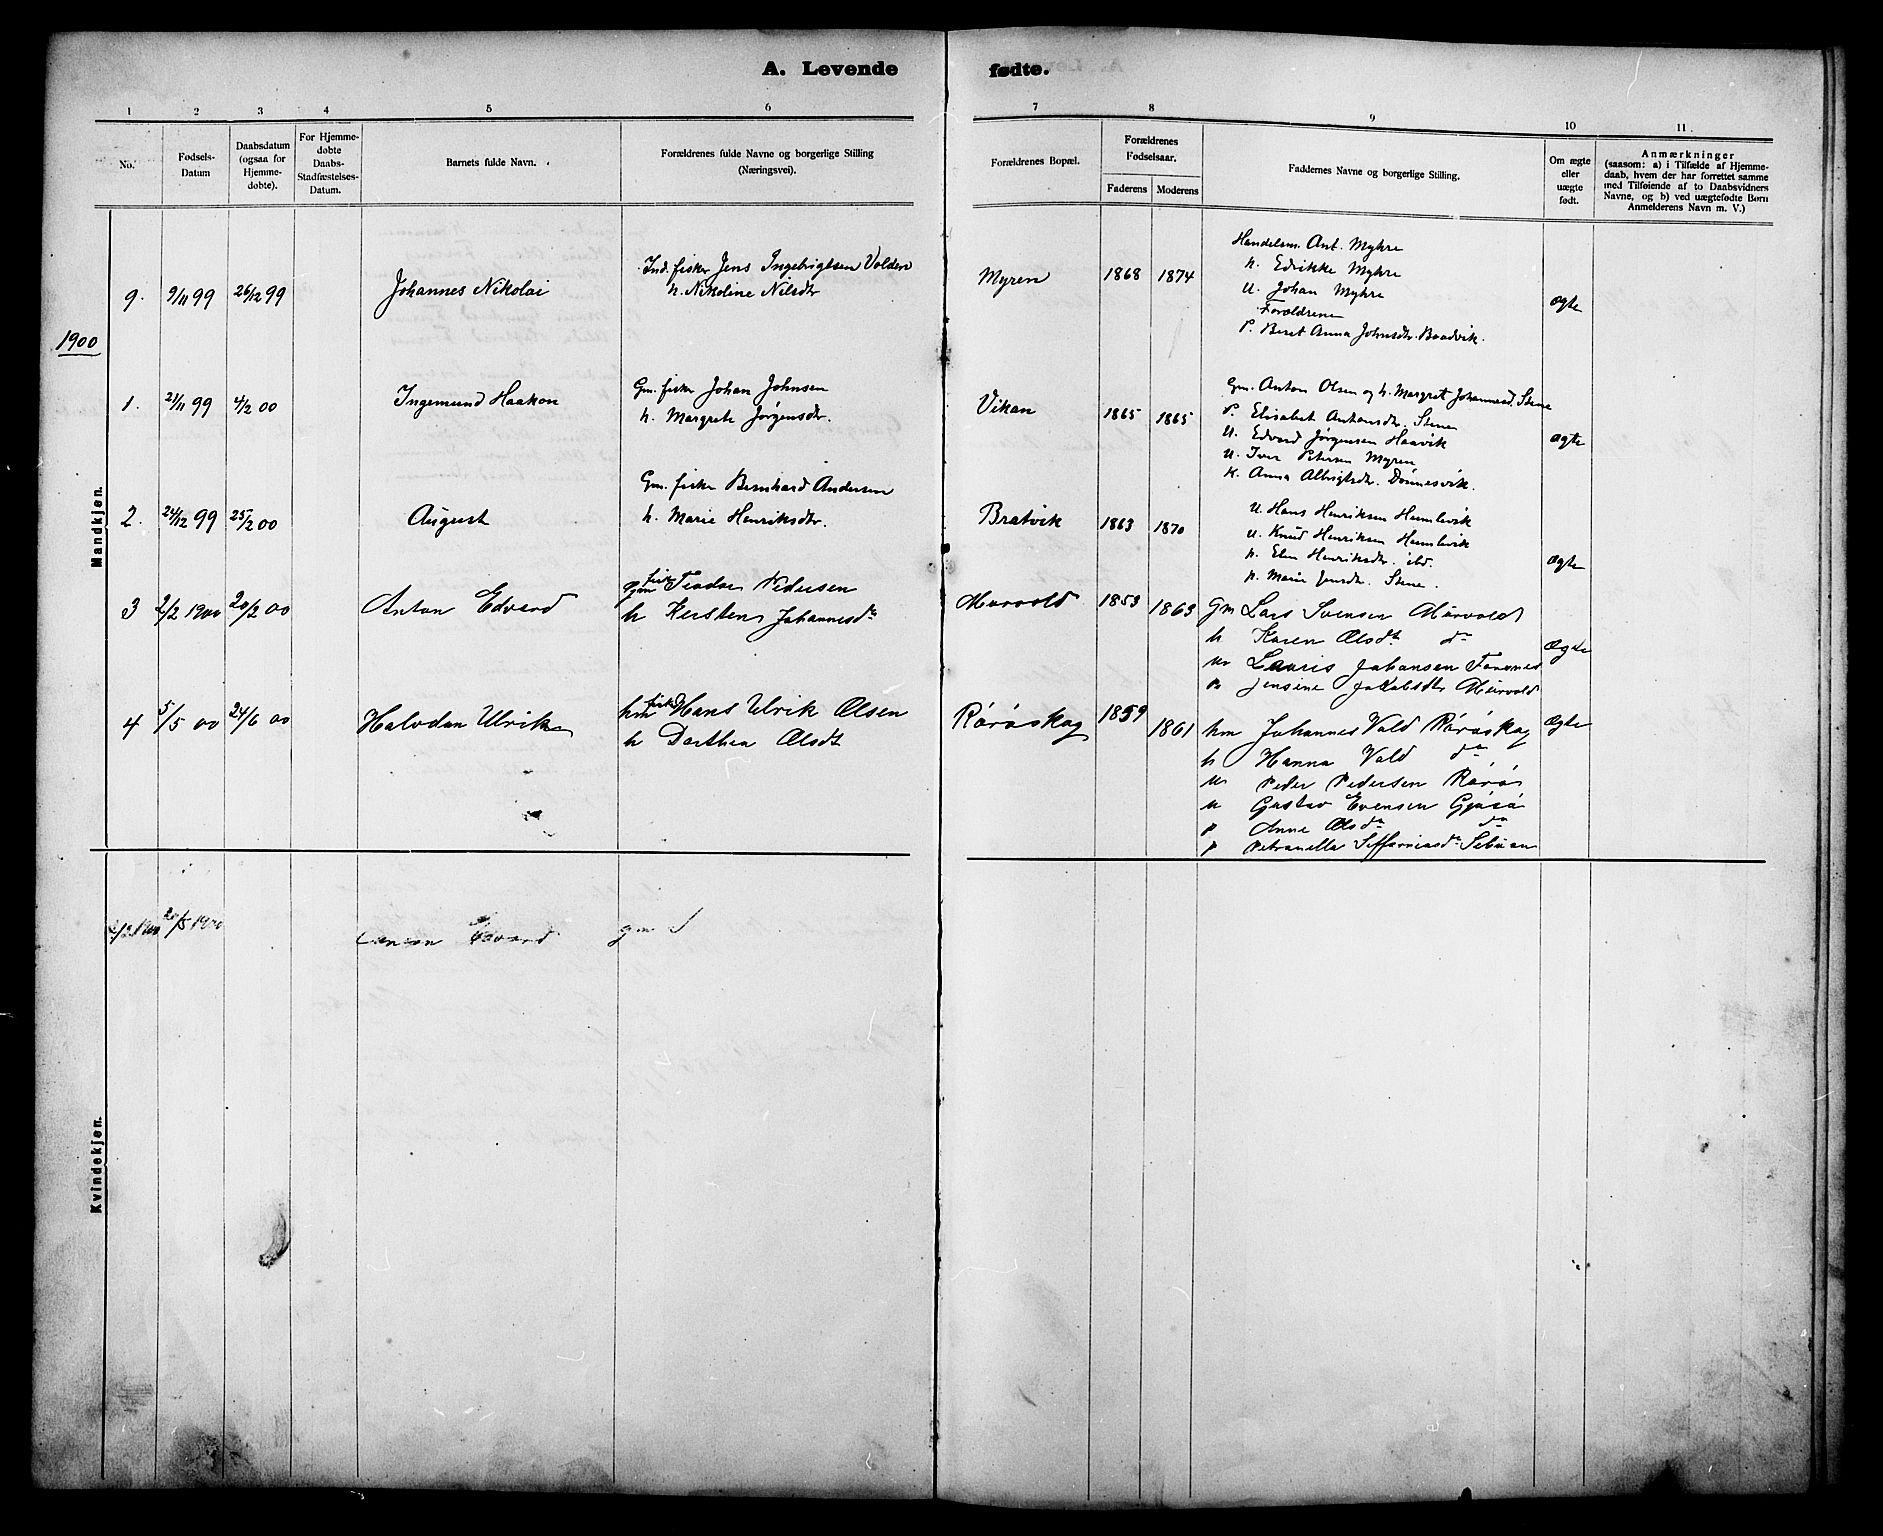 A. Levende fødte.
1 2 3 4 5 6 7 8 9 10 11
No.
Fødsels-
Datum
Daabsdatum
(ogsaa for
Hjemme-
døbte).
For Hjemme-
døbte
Daabs-
Stadfæstelses-
Datum.
Barnets fulde Navn.
Forældrenes fulde Navne og borgerlige Stilling
(Næringsvei).
Forældrenes Bopæl.
Forældrenes
Fødselsaar.
Faderens Moderens
Faddernes Navne og borgerlige Stilling.
Om ægte
eller
uægte
født.
Anmærkninger
(saasom: a) i Tilfælde af Hjemme-
daab, hvem der har forrettet samme
med Tilføiende af to Daabsvidners
Navne, og b) ved uægtefødte Børn
Anmelderens Navn m. V.)
Mandkjøn.
9. 9/11 99 26/12 99 Johannes Nikolai
Ind. fisker Jens Ingebrigtsen Volden
h. Nikoline Nilsdtr
Myren 1868 1874
Handelsm. Ant. Myhre
h. Edrikke Myhre
U. Johan Myhre
Forældrene
P. Beret Anna Johnsdtr. Baadvik.
ægte
1900
1. 21/11 99 4/2 00 Ingemund Haakon
Gm. fisker Johan Johnsen
h. Margrete Jørgensdtr.
Vikan 1865 1865
Gm. Anton Olsen og h. Margret Johannesd. Stene
P. Elisabet Antonsdtr. Stene
U. Edvard Jørgensen Haavik
U. Iver Petersen Myren
K. Anna Albrigtsdtr. Dønnesvik.
ægte
2. 24/12 99 25/2 00 August
Gm. fisker Bernhard Andersen
h. Marie Henriksdtr.
Bratvik 1863 1870
U. Hans Henriksen Hemlevik
U. Knud Henriksen Hemlevik
P. Elen Henriksdtr. ibd.
P. Marie Jensdtr. Stene.
ægte
3 2/2 1900 20/2 00 Anton Edvard
gm fisk Teodor Pedersen
h Kersten Johannesdtr
Murvold 1853 1863
gm Lars Svensen Murvold
h Karen Olsdt do
u Lauris Johansen
P Jensine Jakobsdtr Murvold
Ægte
4 5/5 00 24/6 00 Halvdan Ulrik
hm fisk Hans Ulrik Olsen
h Dorthea Olsdt
Rørøskag 1859 1861
hm Johannes Vold Rørøskag
h Hanna Vold do
u Peder Pedersen Rørø
u Gustav Evensen Gjøsø
p Anne Olsdtr do
p Petranella
Ægte
Kvindekjøn.
2/2 1900 20/5 1900 Anton Edvard gm